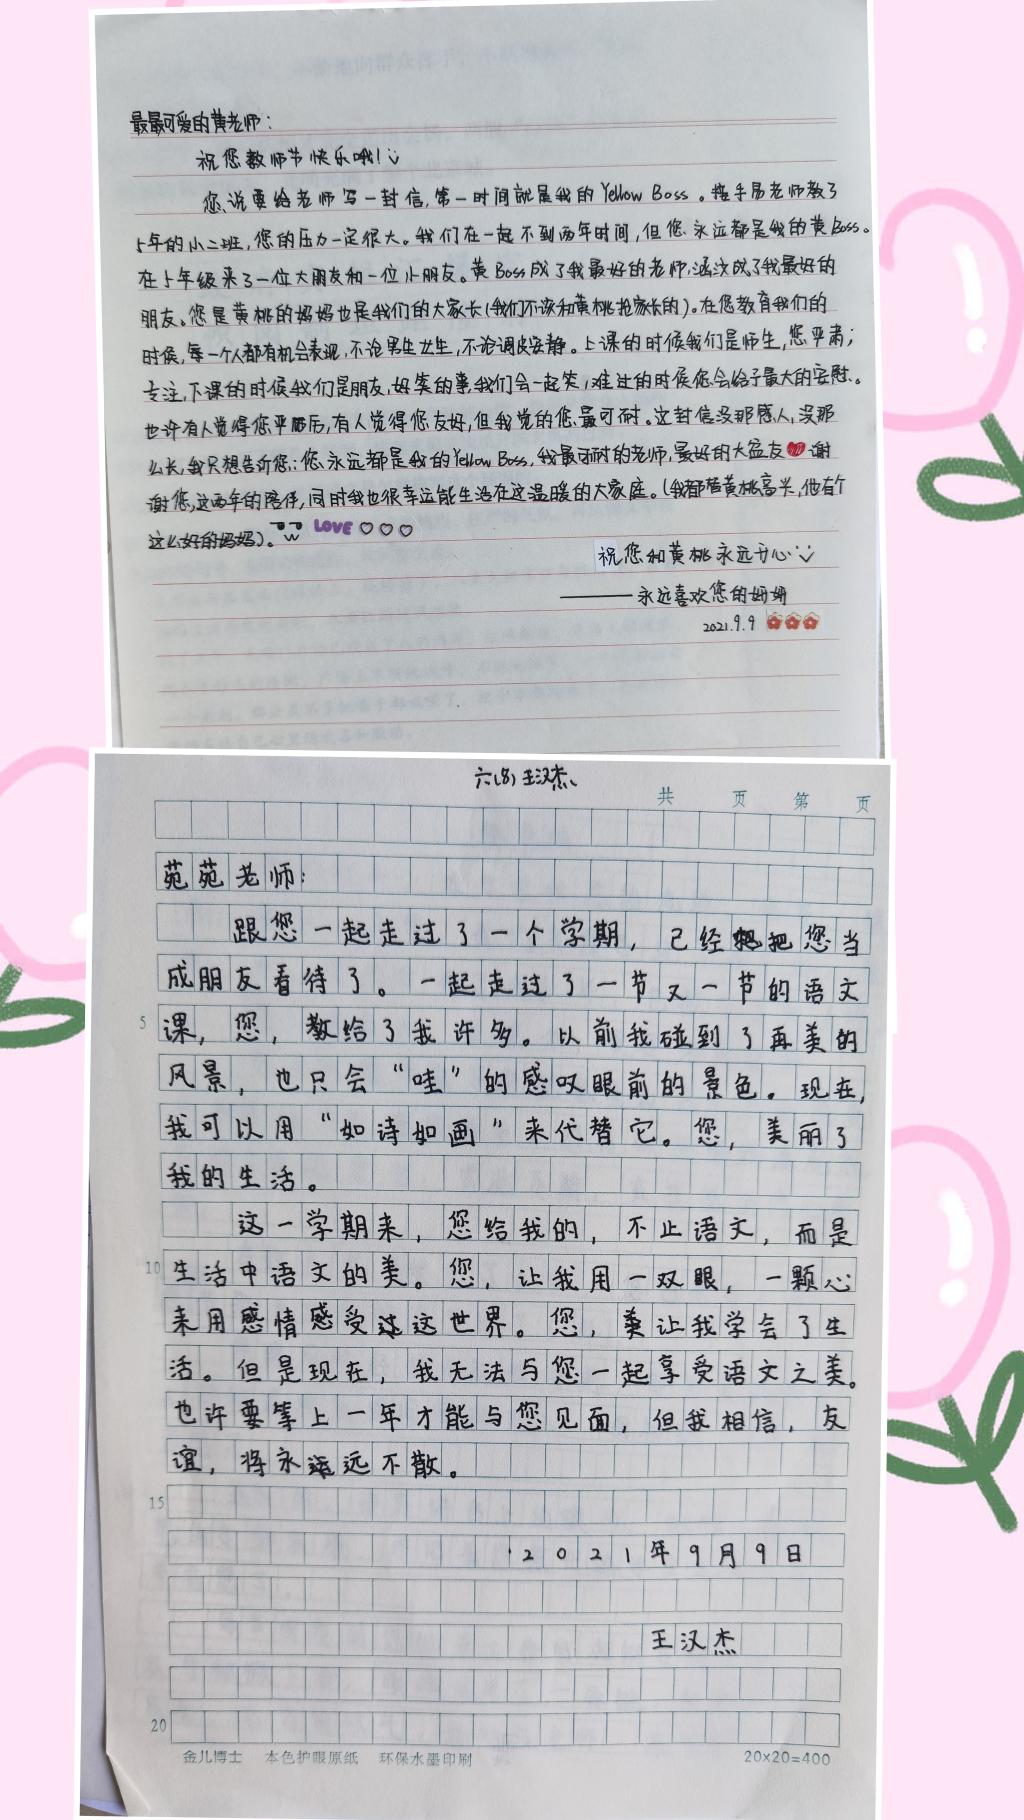 最最可爱的黄老师:
祝您教师节快乐哦!
您说要给老师写一封信,第一时间就是我的Yellow Boss。接手易老师教了
5年的小二班,您的压力一定很大。我们在一起不到两年时间,但您永远都是我的黄Boss。
在5年级来了一位大朋友和一位小朋友。黄Boss成了我最好的老师,涵汶成了我最好的
朋友。您是黄桃的妈妈也是我们的大家长(我们不该和黄桃抢家长的)。在您教育我们的
时候,每一个人都有机会表现,不论男生女生,不论调皮安静。上课的时候我们是师生,您严肃;
专注,下课的时候我们是朋友,好笑的事,我们会一起笑,难过的时候您会给予最大的安慰。
也许有人觉得您严厉,有人觉得您友好,但我觉的您最可耐。这封信没那感人,没那
么长,我只想告诉您:您永远都是我的Yellow Boss,我最可耐的老师,最好的大盆友 谢
谢您,这两年的陪伴,同时我也很幸运能生活在这温暖的大家庭。(我都替黄桃高兴,他有个
这么好的妈妈)。LOVE
祝您和黄桃永远开心
——永远喜欢您的妍妍
2021.9.9
六(8)王汉杰
共 页 第 页
苑苑老师:
跟您一起走过了一个学期,已经把您当
成朋友看待了。一起走过了一节又一节的语文
5 课,您,教给了我许多。以前我碰到了再美的
风景,也只会“哇”的感叹眼前的景色。现在,
我可以用“如诗如画”来代替它。您,美丽了
我的生活。
这一学期来,您给我的,不止语文,而是
10 生活中语文的美。您,让我用一双眼,一颗心
来用感情感受这世界。您,让我学会了生
活。但是现在,我无法与您一起享受语文之美。
也许要等上一年才能与您见面,但我相信,友
谊,将永远不散。
15
2021年9月9日
王汉杰
20
金儿博士 本色护眼原纸 环保水墨印刷 20×20=400